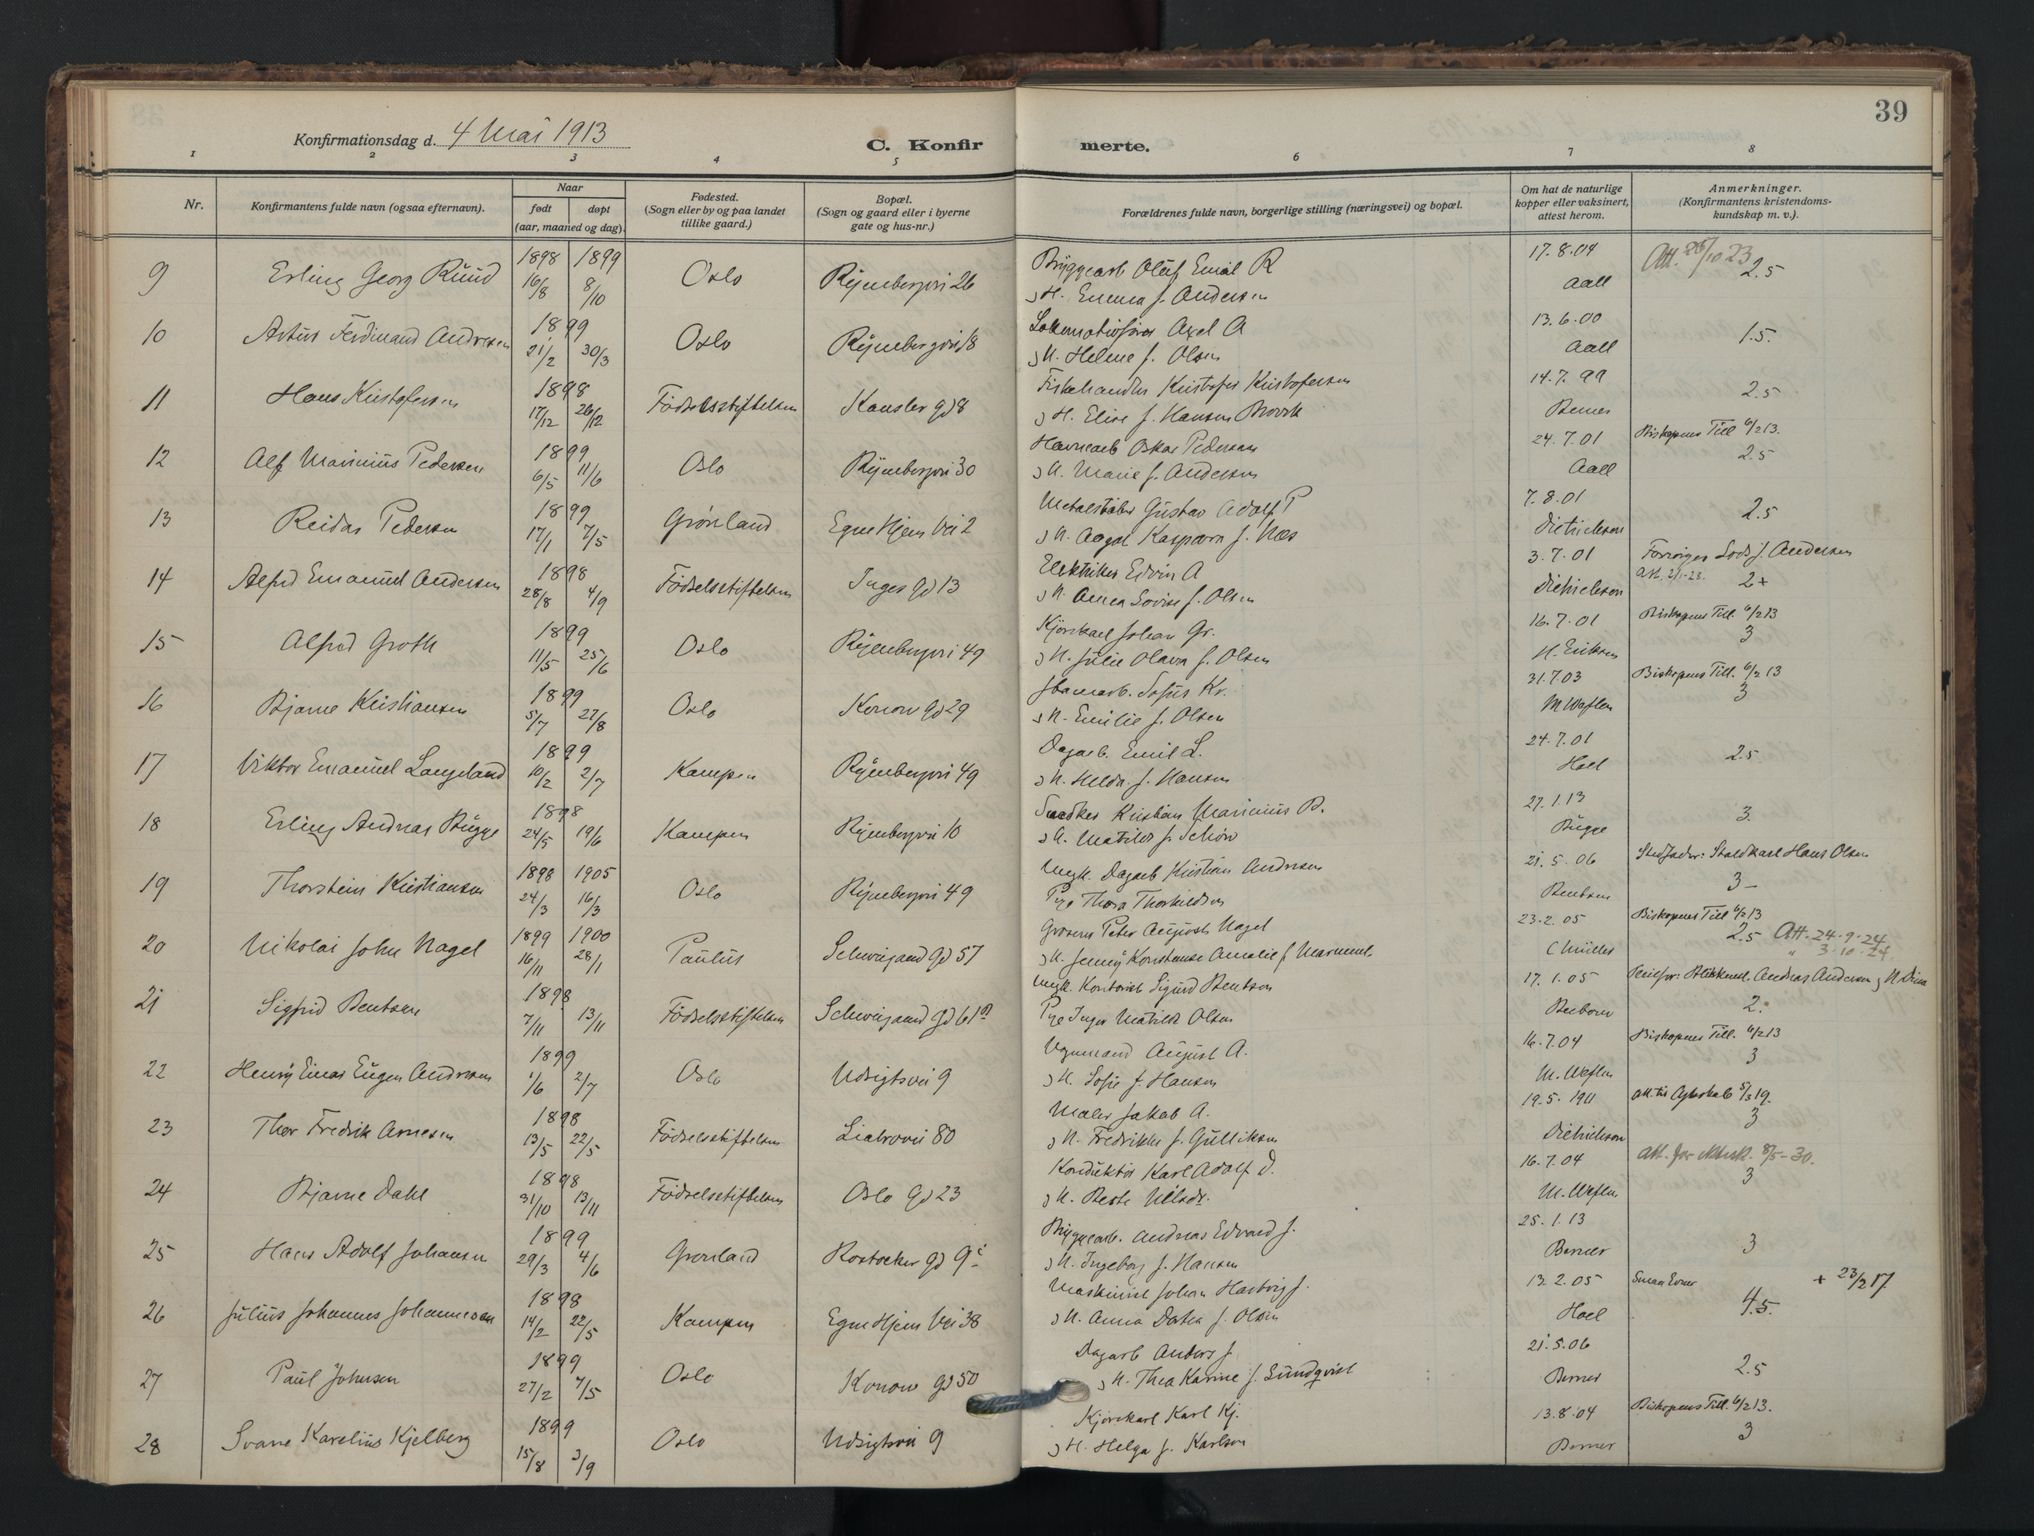 39
Konfirmationsdag d. 4 Mai 1913
C. Konfirmerte.
1 2 3 4 5 6 7 8
Nr.
Konfirmantens fulde navn (ogsaa efternavn).
Naar
født døpt
(aar, maaned og dag).
Fødested.
(Sogn eller by og paa landet
tillike gaard.)
Bopæl.
(Sogn og gaard eller i byerne
gate og hus-nr.)
Forældrenes fulde navn, borgerlige stilling (næringsvei) og bopæl.
Om hat de naturlige
kopper eller vaksinert,
attest herom.
Anmerkninger.
(Konfirmantens kristendoms-
kundskap m. v.).
9 Erling Georg Ruud 1898 16/8 1899 8/10 Oslo 26 Bryggearb Oluf Emil R 17.8.04 Att. 26/10 23
H. Emma f. Andersen Aall 2.5
10 Ferdinand Andresen 1899 21/2 30/3 Oslo 18 Axel A 13.6.00
H. Helene f. Olsen Aall 1.5.
11 Hans Kristofersen 1898 17/12 26/12 Födselsstiftelsen Kansler gd 8 Fiskehandler Kristofer Kristofersen 14.7.99
H. Elise f. Hansen Berner 2.5
12 Alf Marinius Pedersen 1899 6/5 11/6 Oslo 30 Havnearb Oskar Pedersen 24.7.01 Biskopens Till 6/2 13.
H. Marie f. Andersen Aall 2.5
13 Reidar Pedersen 1899 17/1 7/5 Grønland Egne Hjem Vei 2 Gustav Adolf P 7.8.01
H. Kasparra f. Næs Dietrichson 2.5
14 Alfred Emanuel Andersen 1898 28/8 4/9 Födselsstiftelsen Inges gd 13 Elektriker Edvin A 3.7.01 Andersen
H. Anna Lovise f. Olsen Dietrichson 2+
15 Alfred Groth 1899 11/5 25/6 Oslo 49 Kjørekarl Johan Gr. 16.7.01 Biskopens Till. 6/2 13
H. Julie Olava f. Olsen H. Eriksen 3
16 Bjarne Kristiansen 1899 5/7 27/8 Oslo Konow gd 29 Kr. 31.7 03 Biskopens Till. 6/2 13
H. Emilie f. Olsen 3
17 Viktor Emanuel Langeland 1899 10/2 2/7 Kampen 49 Dagarb. Emil L. 24.7.01
H. Helda f. Hansen Hoel 2.5
18 Erling Andreas Bugge 1898 24/5 19/6 Kampen 10 Snedker Kristian Marinius B. 27.1.13
H. Matilde f. Bugge 3.
19 Thorstein Kristiansen 1898 24/3 1905 16/3 Oslo 49 Ungk. Dagarb Kristian Andresen 21.5.06 Stedfader: Staldkarl Hans Olsen
Pge Thora Thorkildsen Bentsen 3-
20 Nikolai John Nagel 1899 16/11 1900 28/1 Paulus Schweigaard gd 57 Peter August Nagel 23.2.05 Biskopens Till 6/2 13
H. Jenny Konstanse Amalie f. C Müller 2.5 Att. 24.9.24
" 3.10.24.
21 Sigfrid Bentsen 1898 7/11 13/11 Födselsstiftelsen Schweigaard gd 61 Ungk. Kontorist Sigurd Bentsen 17.1.05 Andreas Andersen
Pge Inger Matilde Olsen 2.
22 Henry Einar Eugen Andresen 1899 1/6 2/7 Oslo Udsigtsvei 9 Vognmand August A. 16.7.04 Biskopens Till. 6/2 13
H. Sofie f. Hansen 3
23 Thor Fredrik Arnesen 1898 13/5 22/5 Födselsstiftelsen Liabrovei 80 Maler Jakob A. 19.5.1911
H. Fredrikke f. Gulliksen Dietrichson 3
24 Bjarne Dahl 1898 31/10 13/11 Födselsstiftelsen Oslo gd 23 Konduktör Karl Adolf D. 16.7.04 Att. 8/5-30.
H. 3
25 Hans Adolf Johansen 1899 29/3 4/6 Grønland Rostocker gd 9 Bryggearb. Andreas Edvard J. 25.1.13
H. Ingeborg f. Hansen Berner 3
26 Julius Johannes Johannesen 1898 14/2 22/5 Kampen Egne Hjem Vei 38 Maskinist Johan Hartvig J. 13.2.05 + 23/2 17
H. Anna f. Olsen Hoel 4.5.
27 Paul Johnsen 1899 27/2 7/5 Oslo Konow gd 50 Dagarb Anders J. 21.5.06
H. Thea Karine f. Sundqvist Berner 2.5
28 Svane Karelius Kjelberg 1899 15/8 3/9 Oslo Udsigtsvei 9 Kjørekarl Karl Kj. 13.8.04 Biskopens Till. 6/2 13.
H. Helga f. Karlson Berner 3